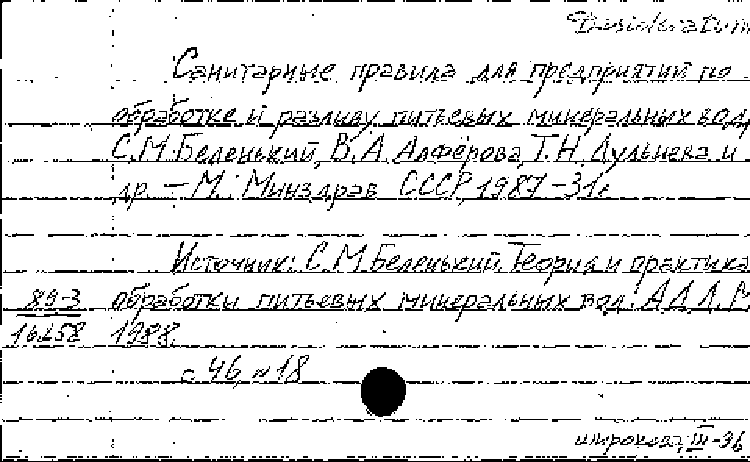 Desideratum
Санитарные правила для предприятий по
обработке и разливу питьевых минеральных вод,
С.М.Беленький, В.А.Алфёрова, Т.Н.Дульнева и
др. – М.: Минздрав СССР, 1987 – 31с
Источник: С.М.Беленький. Теория и практика
89-3 обработки питьевых минеральных вод. АДЛ.Р
16458 1988.
с. 46, №18
III-96